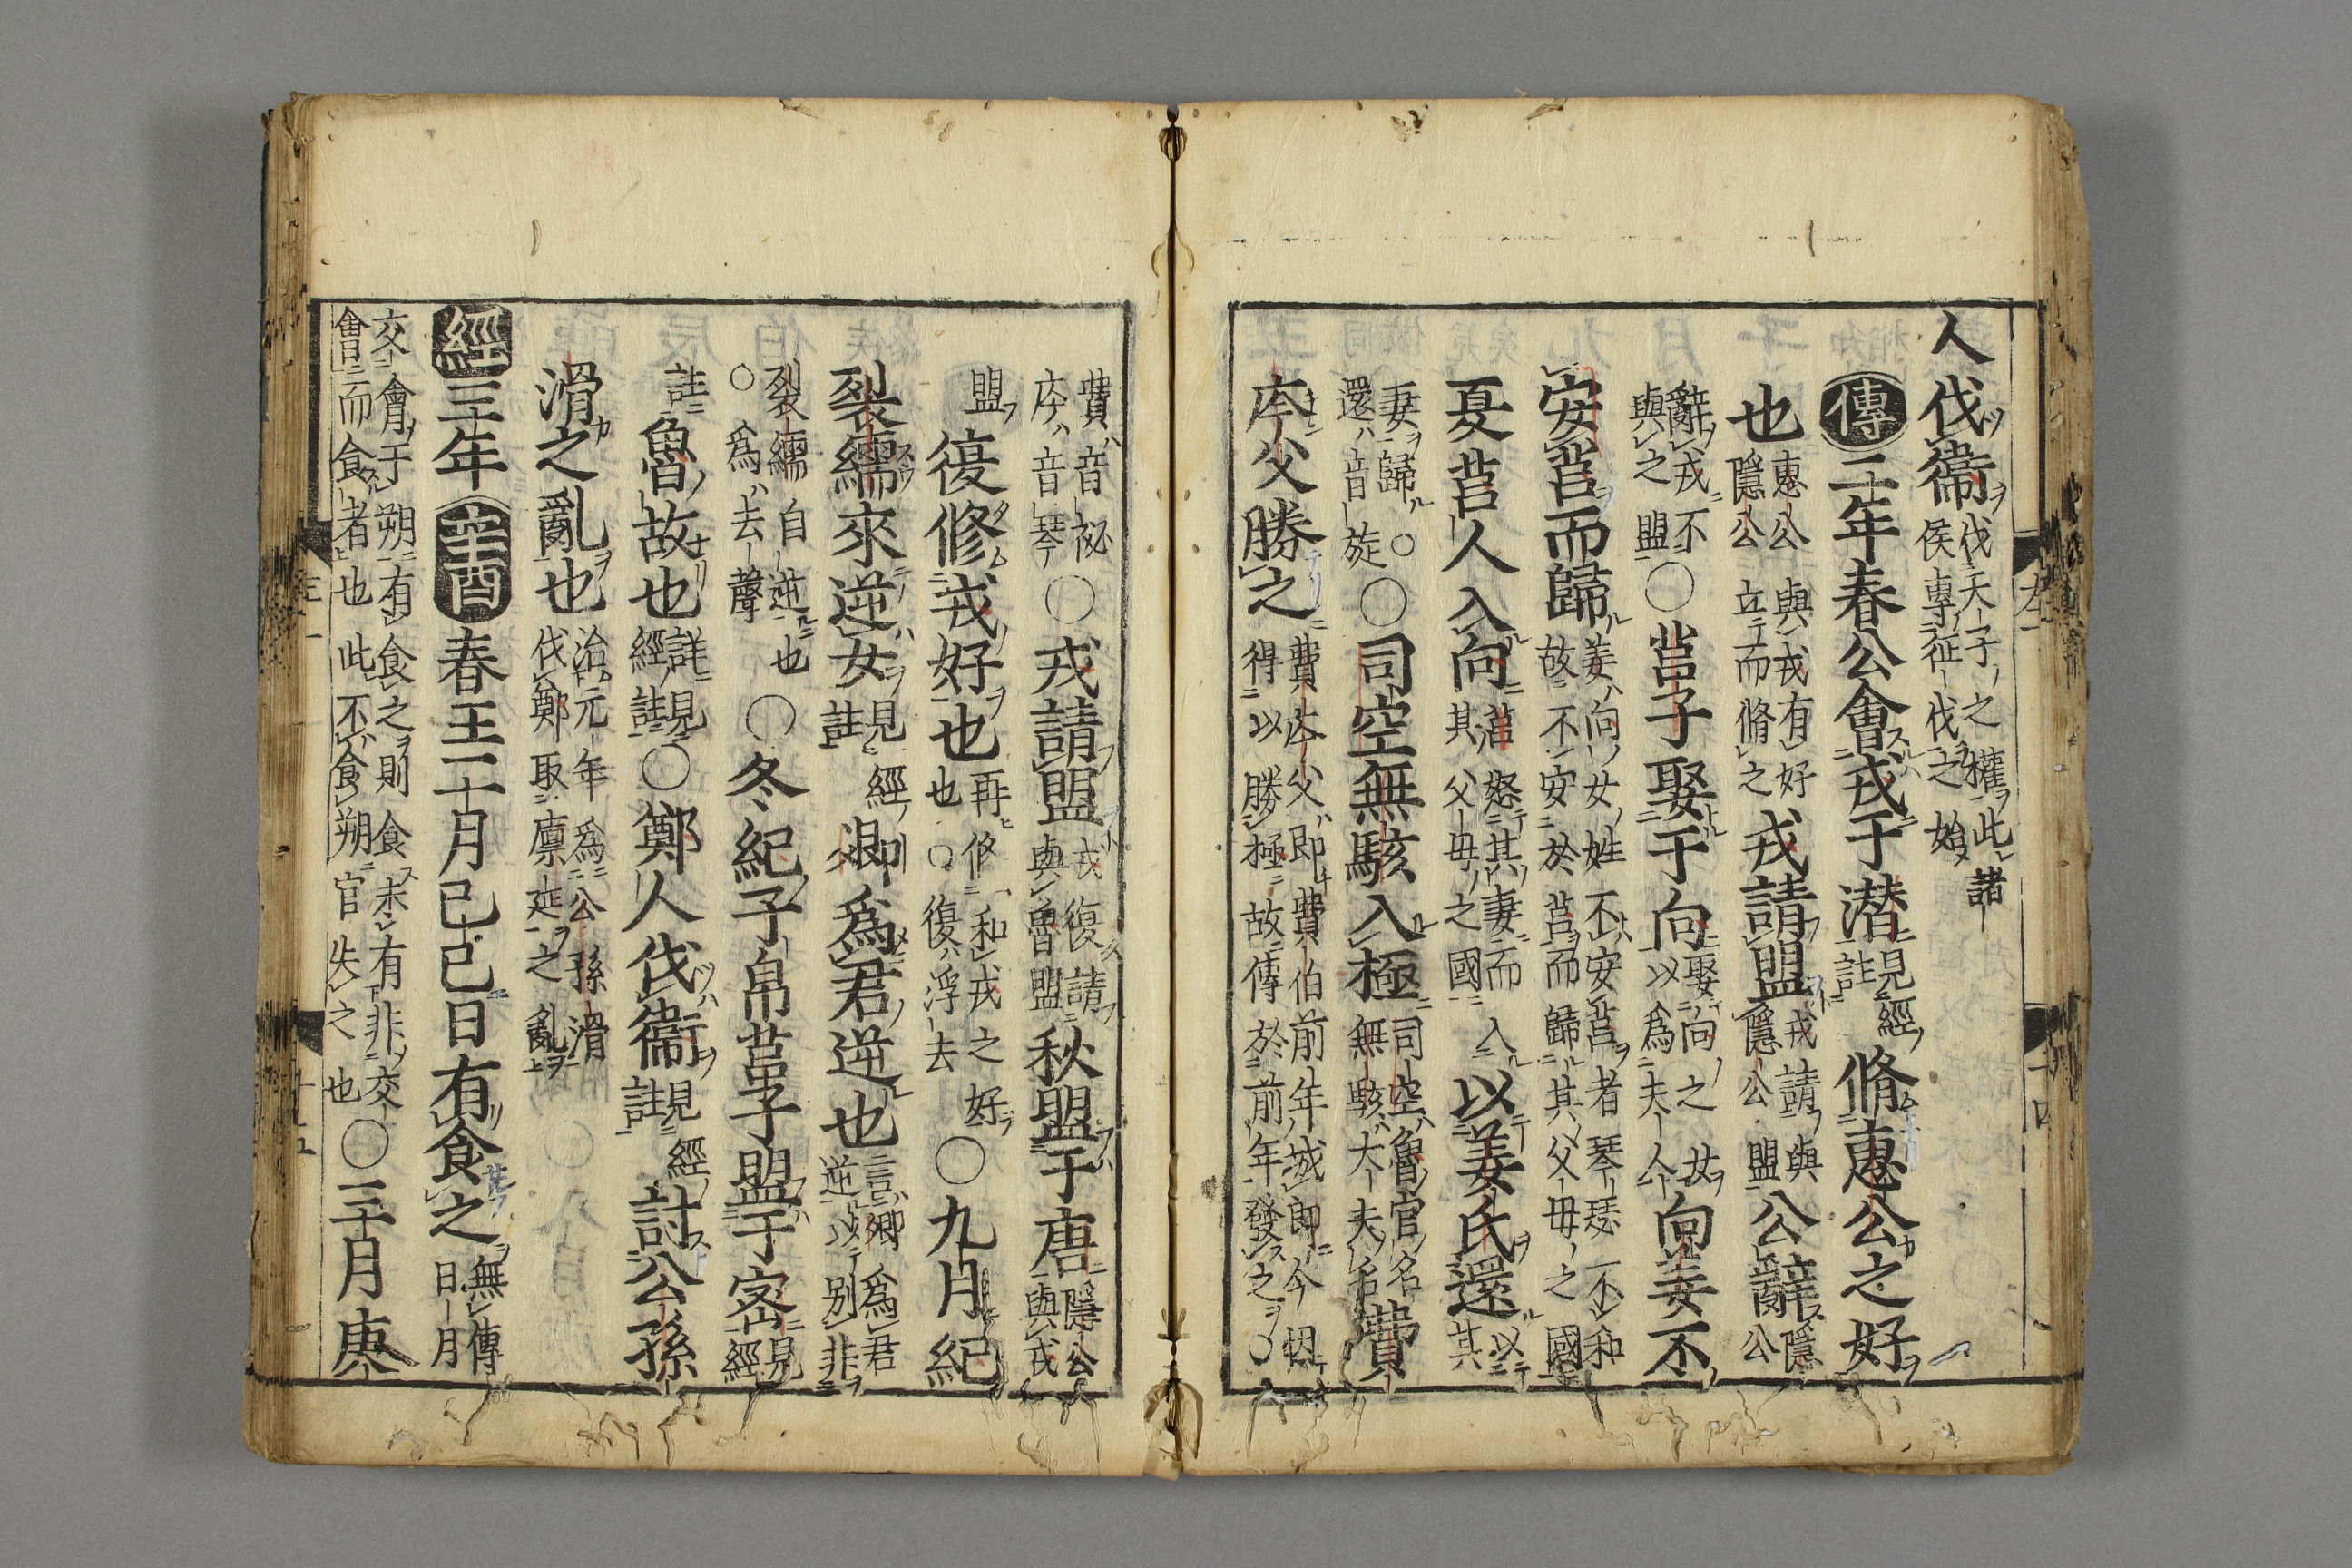 人伐衞伐天子之權此諸侯專征伐之始
傳二年春公會戎于潜見經註脩惠公之好
也惠公與戎有好隱公立而脩之戎請盟戎請與隱公盟公辭隱公
辭戎不與之盟〇莒子娶于向娶向之女以爲夫人向姜不
安莒而歸姜向女姓不安莒者琴瑟不和故不安於莒而歸其父母之國
夏莒人入向莒怒其妻而入其父母之國以姜氏還以其
妻歸〇還音旋〇司空無駭入極司空魯官名無駭大夫名費
庈父勝之費庈父即費伯前年城郎今因得以勝極故傳於前年發之〇
費音祕庈音琴〇戎請盟戎復請與魯盟秋盟于唐隱公與戎
盟復修戎好也再修和戎之好也〇復浮去〇九月紀
裂繻來逆女見經註卿爲君逆也言卿爲君逆以別非
裂繻自逆也〇爲去聲〇冬紀子帛莒子盟于宻見經
註魯故也詳見經註〇鄭人伐衞見經註討公孫
滑之亂也治元年爲公孫滑伐鄭取廪延之亂
經三年辛酉春王二月己巳日有食之無傳日月
交會于朔有食之則食未有非交會而食者也此不食朔官失之也〇三月庚